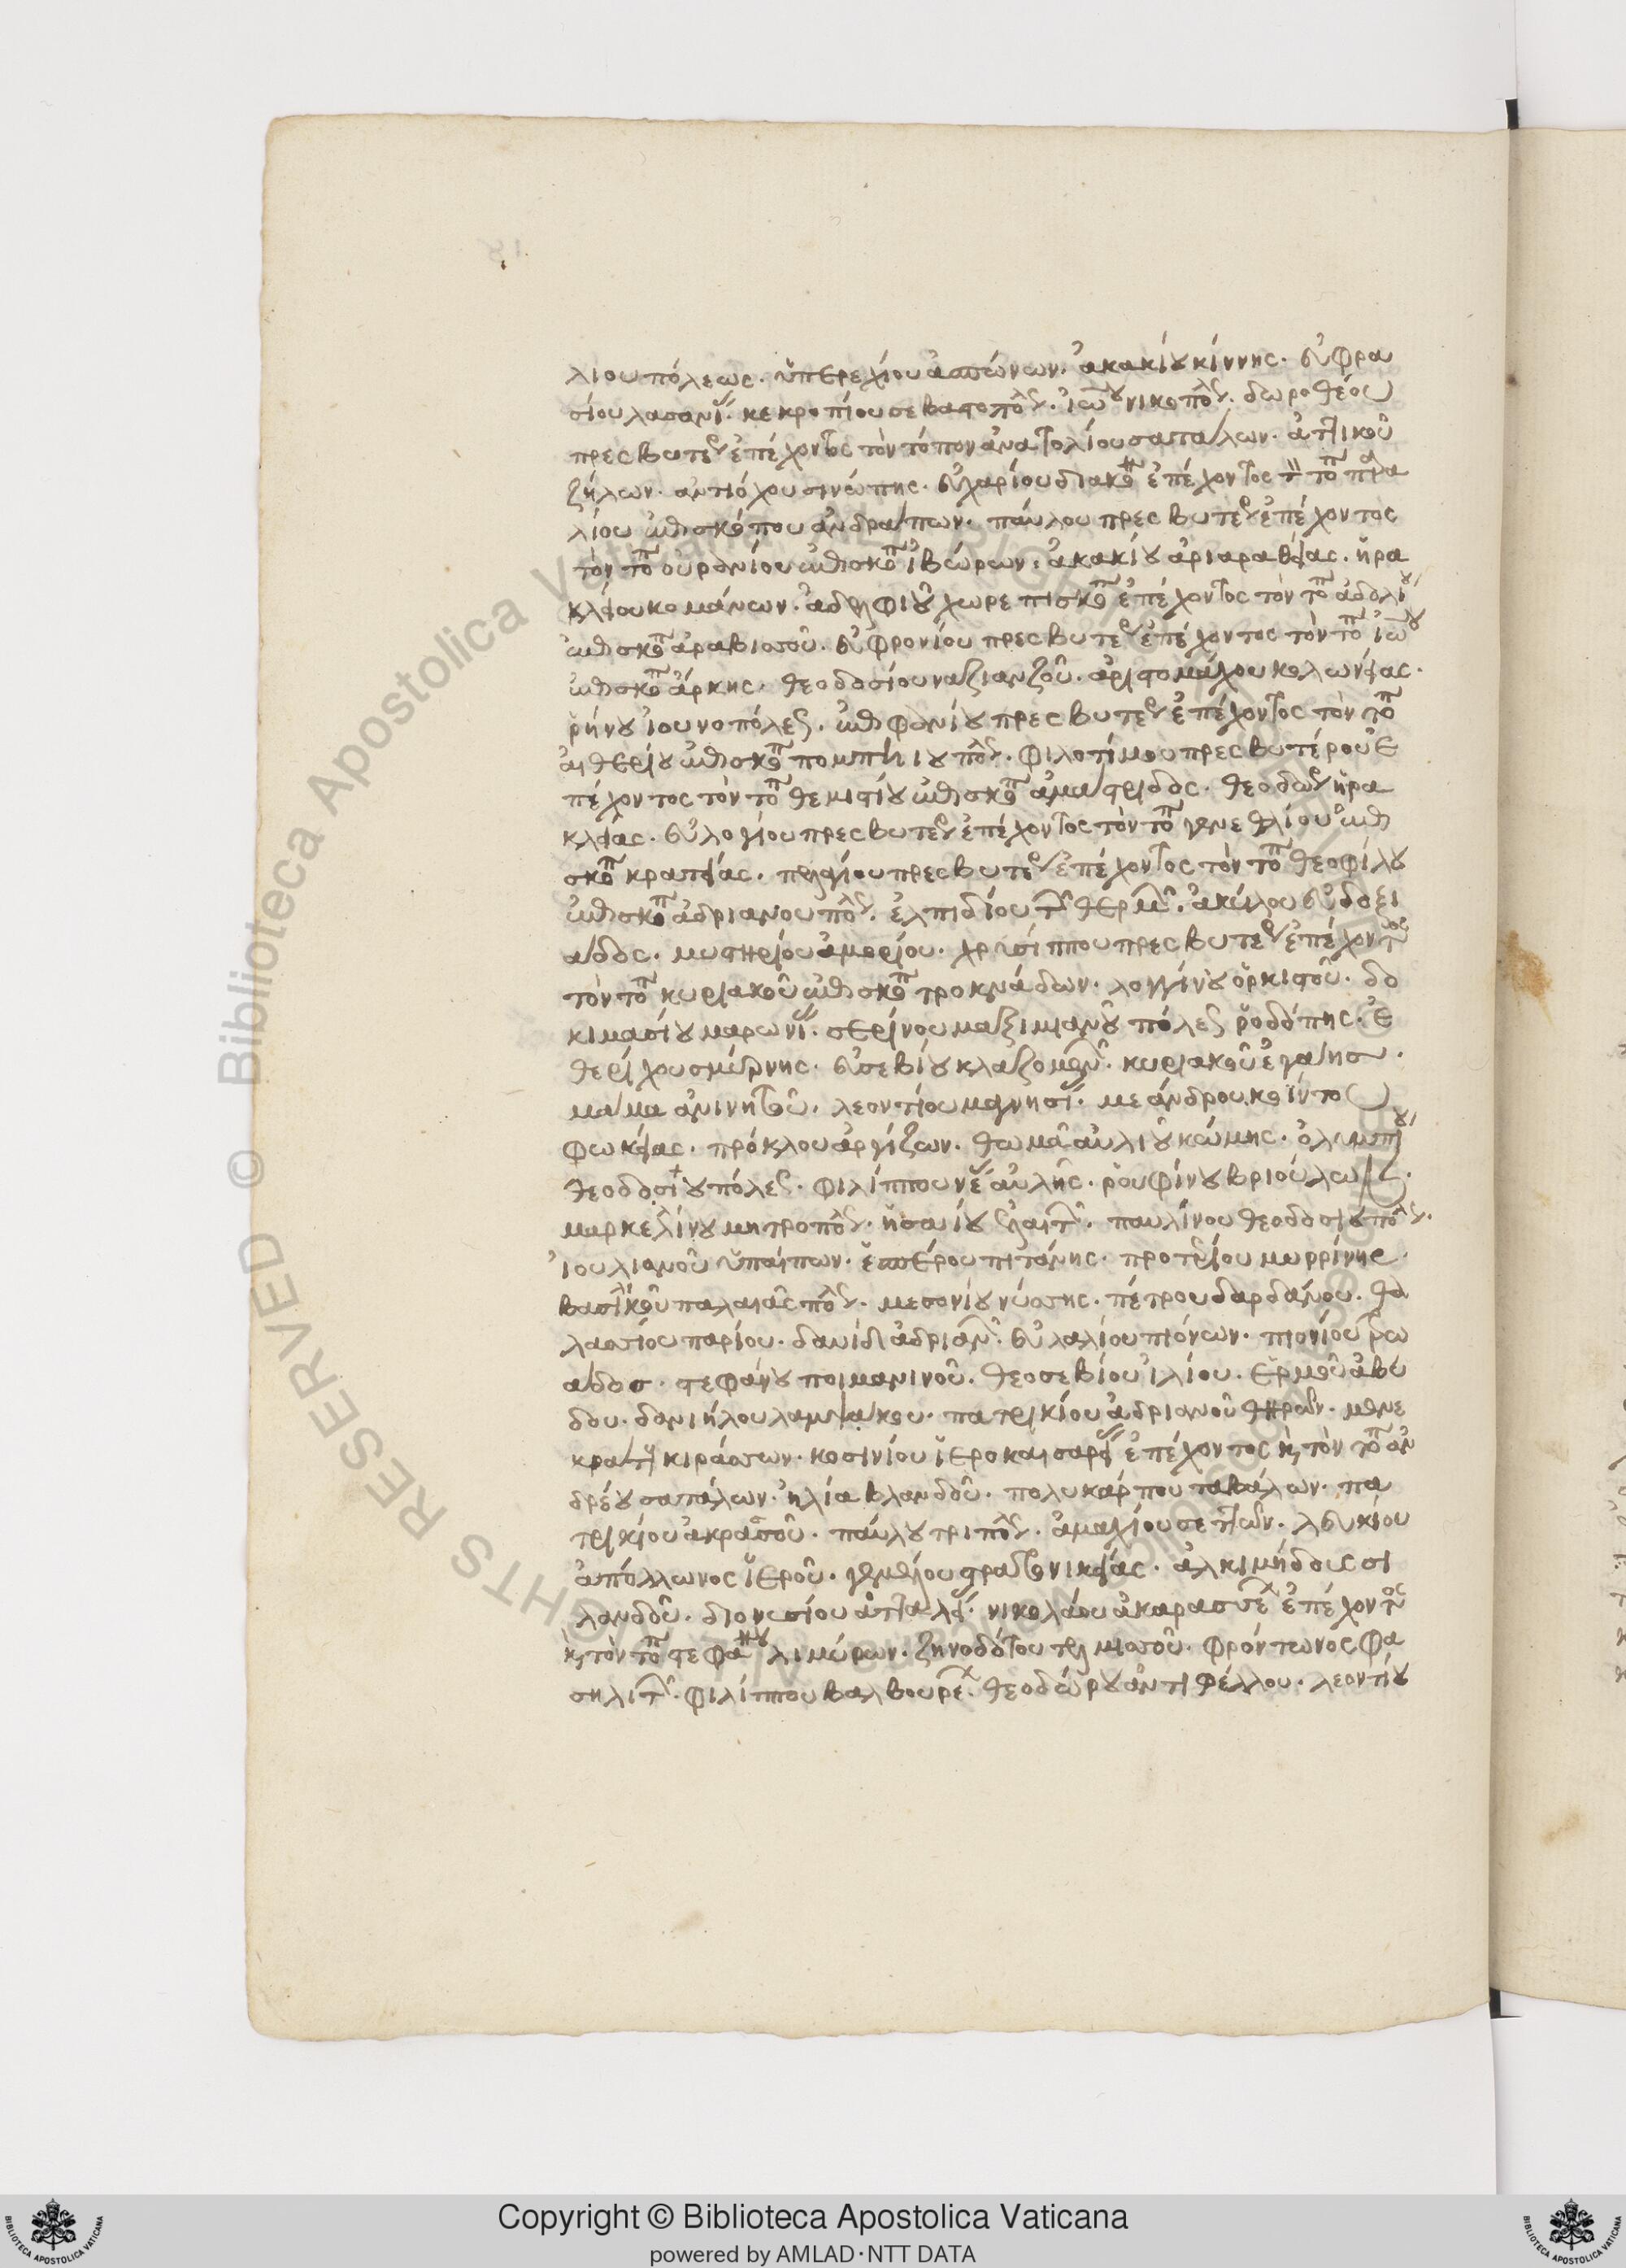 λιουπόλεως. ὑπερεχίου ἀσπώνων. ἀκακίου κίννης. εὐφρα
σίου λαγανί. κεκροπίου σεβαστοπόλ. ἰω νικοπόλ. δωροθέου
πρεσβυτέρ ἐπέχοντος τὸν τόπον ἀνατολίου σαταλων. ἀττικοῦ
ζήλων. ἀντιόχου σινώπης. εὐχαρίου διακο ἐπέχοντος τ τοπ
λίου ἐπισκόπου ἀνδράπων. παύλου πρεσβυτέρ ἐπέχοντος
τὸν τοπ οὐρανίου ἐπισκοπ ἰβώρων. ἀκακίου ἀριαραθείας. ἡρα
κλείου κομάνων. ἀδελφίου χωρεπισκοπ ἐπέχοντος τὸν τοπ ἀδολι
ἐπισκοπ ἀραβισσοῦ. εὐφρονίου πρεσβυτέρ ἐπέχοντος τὸν τοπ ἰω
ἐπισκοπ ἄρκης. θεοδοσίου ναζιανζοῦ. ἀριστομάχου κολωνείας.
ρήνου ἰουνοπόλεως. ἐπιφανίου πρεσβυτέρ ἐπέχοντος τὸν τοπ
αἰθερίου ἐπισκοπ πομπηιουπόλ. φιλοτίμου πρεσβυτέρου ἐ
πέχοντος τὸν τοπ θεμιστίου ἐπισκοπ ἀμαστριδος. θεοδώρ ἡρα
κλείας. εὐλογίου πρεσβυτέρ ἐπέχοντος τὸν τοπ γενεθλίου ἐπι
σκοπ κρατείας. πελαγίου πρεσβυτέρ ἐπέχοντος τὸν τοπ θεοφίλου
ἐπισκοπ ἀδριανουπόλ. ἐλπιδίου τ θερμ. ἀκύλου εὐδοξι
άδος. μυστηρίου ἀμορίου. χρυσίππου πρεσβυτέρ ἐπέχοντος
τὸν τοπ κυριακοῦ ἐπισκοπ τροκνάδων. λογγίνου ὀρκιστοῦ. δο
κιμασίου μαρωνί. σερίνου μαξιμιανουπόλεως ῥοδόπης. ἐ
θερίχου σμύρνης. εὐσεβίου κλαζομεν. κυριακοῦ ἐγαίησ.
μαμα ἀνινητοῦ. λεοντίου μαγνησί. μεάνδρου. κοίντου
φωκείας. πρόκλου ἀργίζων. θωμᾶ αὐλιουκώμης. ὀλυμπί
θεοδοσιουπόλεως. φιλίππου νέ αὐλῆς. ρουφίνου βριούλων.
μαρκελίνου μητροπόλ. ἡσαίου ἐλαιτ. παυλίνου θεοδοσιουπόλ.
ἰουλιανοῦ ὑπαίπων. ἑσπέρου πιτάνης. προτερίου μυρρίνης.
βασιλικοῦ παλαιᾶς πόλ. μεσονίου νύσσης. πέτρου δαρδάνου. θα
λασσίου παρίου. δαυίδ ἀδριαν. εὐλαλίου πιόνων. πιονίου τρω
άδοσ. στεφάνου ποιμανινοῦ. θεοσεβίου ἰλίου. ἑρμοῦ ἀβύ
δου. δανιήλου λαμψάκου. πατρικίου ἀδριανοῦ θηρῶν. μενε
κράτη κιράσσων. κοσινίου ἱεροκαισαρεί ἐπέχοντος καὶ τὸν τοπ ἀν
δρέου σατάλων. ἠλία βλανδοῦ. πολυκάρπου ταβάλων. πα
τρικίου ἀκρασοῦ. παύλου τριπόλ. ἀμαχίου σεττῶν. λευκίου
ἀπόλλωνος ἱεροῦ. γεμελίου στρατονικείας. ἀλκιμήδους σι
λανδοῦ. διονυσίου ἀτταλεί. νικολάου ἀκαρασσε ἐπέχοντος
καὶ τὸν τοπ στεφανου λιμύρων. ζηνοδότου τελμισσοῦ. φρόντωνος φα
σηλιτ. φιλίππου βαλβουρε. θεοδώρου ἀντιφέλλου. λεοντίου
Copyright © Biblioteca Apostolica Vaticana
powered by AMLAD·NTT DATA